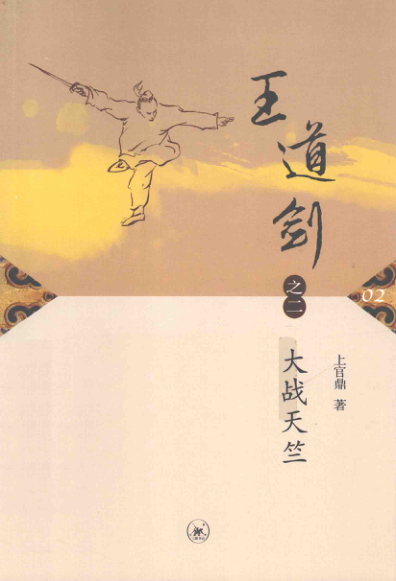 王道剑
之二
02
大战天竺
上官鼎 著